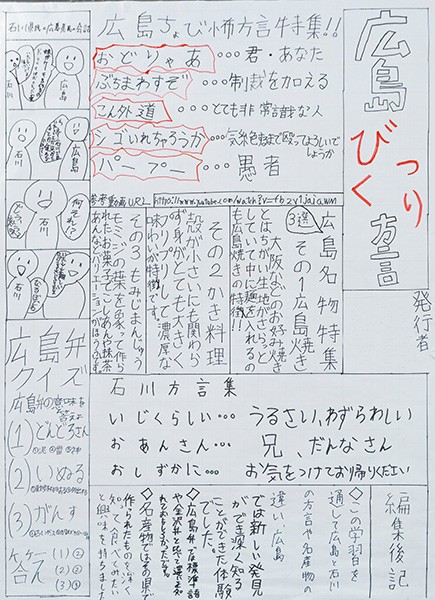 広島
びっくり
方言
発行者
広島ちょび怖方言特集!!
おどりゃあ…君・あなた
ぶちまわすぞ…制裁を加える
こん外道…とても非常識な人
シゴいれちゃろうか…気絶するまで殴ってよろしいでしょうか
パープー…愚者
石川県民と広島県民の会話
広島
石川
石川
広島
石川
何それ!?
石川
広島
参考動画URL
広島名物特集
3選
その1 広島焼き
大阪などのお好み焼き
とはちがい生地がさらっと
していて中に麺を入れるの
も広島焼きの特徴!!
その2 かき料理
殻が小さいにも関わら
ず身がとても大きく
プリプリして濃厚な
味わいが特徴です。
その3 もみじまんじゅう
モミジの葉を象って作ら
れたお菓子でこしあんや抹茶
あんなどバリエーションがほうふです。
石川方言集
いじくらしい…うるさい、わずらわしい
おあんさん…兄、だんなさん
おしずかに…お気をつけてお帰りください
広島弁
クイズ
広島弁の意味を
答えよ
(1)どんどろさん
(2)いぬる
(3)がんす
答え
(1)②
(2)②
(3)①
編集後記
◇この学習を
通して広島と石川
の方言や名産物の
違い、広島
では新しい発見
ができ深く知る
ことができた体験
でした。
◇広島弁では標準語
や金沢弁と比べて違えが
◇名産物ではその県で
作られたものを深く
知って、食べてみたい
と興味を持ちました